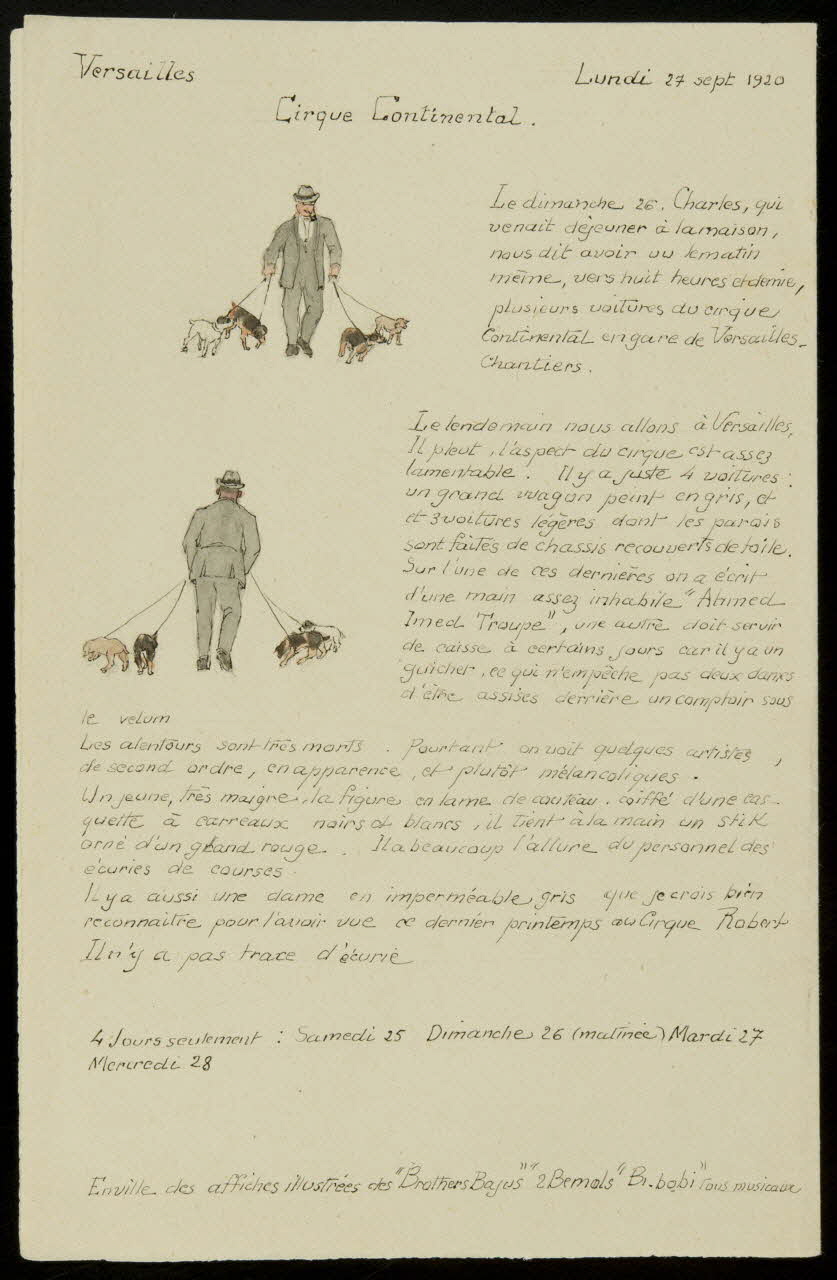 Versailles
Lundi 27 sept 1920
Cirque Continental.
Le dimanche 26. Charles, qui
venait déjeuner à la maison,
nous dit avoir vu le matin
même, vers huit heures et demie,
plusieurs voitures du cirque
Continental en gare de Versailles-
Chantiers.
Le lendemain nous allons à Versailles,
Il pleut, l'aspect du cirque est assez
lamentable. Il y a juste 4 voitures :
un grand wagon peint en gris, et
et 3 voitures légères dont les parois
sont faites de chassis recouverts de toile.
Sur l'une de ces dernières on a écrit
d'une main assez inhabile "Ahmed
Imed Troupe", une autre doit servir
de caisse à certains jours car il y a un
guichet, ce qui n'empêche pas deux dames
d'être assises derrière un comptoir sous
le velum
Les alentours sont très morts. Pourtant on voit quelques artistes,
de second ordre, en apparence, et plutôt mélancoliques.
Un jeune, très maigre, la figure en lame de couteau. coiffé d'une cas-
quette à carreaux noirs et blancs, il tient à la main un stik
orné d'un gland rouge. Il a beaucoup l'allure du personnel des
écuries de courses.
Il y a aussi une dame en imperméable gris que je crois bien
reconnaitre pour l'avoir vue ce dernier printemps au Cirque Robert
Il n'y a pas trace d'écurie
4 Jours seulement : Samedi 25 Dimanche 26 (matinée) Mardi 27
Mercredi 28
En ville des affiches illustrées des "Brothers Bajus" "2 Bemols" Bi-bobi" tous musicaux